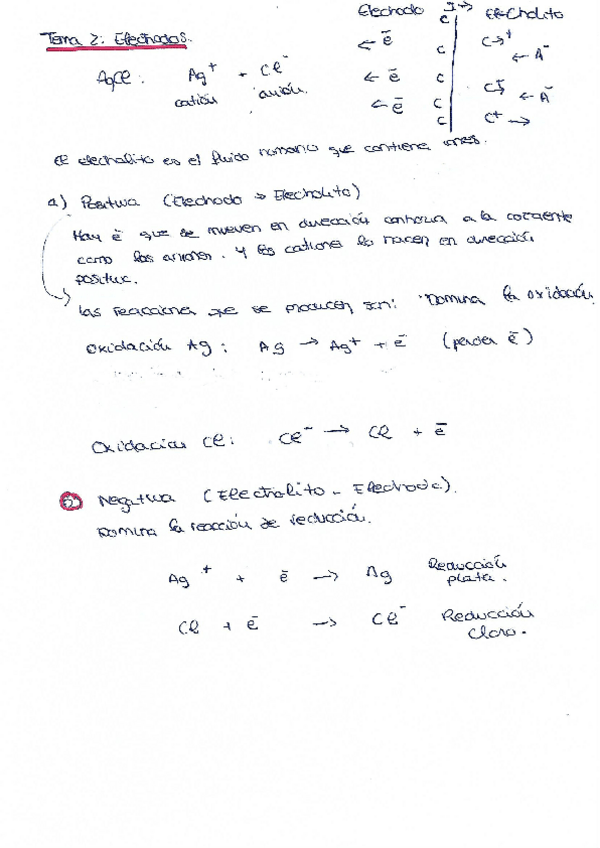 Electrodo I→ Electrolito
Tema 2: Electrodos.
AgCl: Ag⁺ + Cl⁻
catión anión.
← ē C C→⁺
← A⁻
← ē C
← ē C ← A⁻
C C⁺ →
El electrolito es el fluido humano que contiene iones.
a) Positiva (Electrodo → Electrolito)
Hay ē que se mueven en dirección contraria a la corriente
como los aniones. Y los cationes lo hacen en dirección
positiva.
Las reacciones que se producen son: Domina la oxidación.
Oxidación Ag: Ag → Ag⁺ + ē (perder ē)
Oxidación Cl: Cl⁻ → Cl + ē
b) Negativa (Electrolito - Electrodo).
Domina la reacción de reducción.
Ag⁺ + ē → Ag Reducción
plata.
Cl + ē → Cl⁻ Reducción
Cloro.